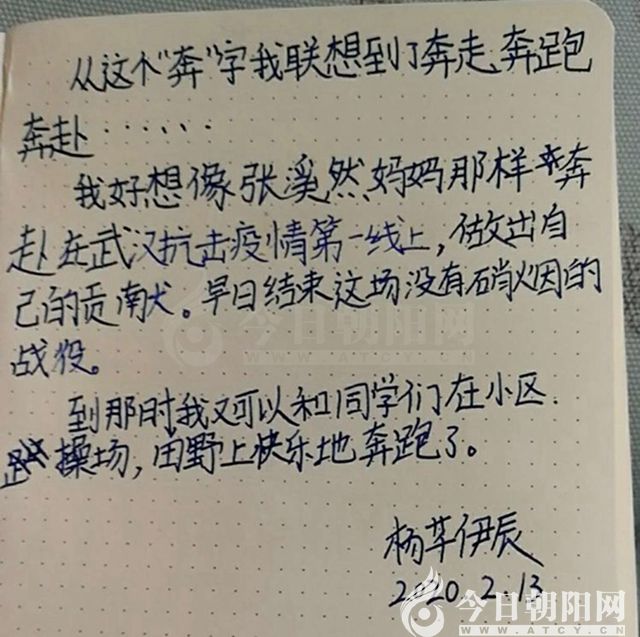 从这个"奔"字我联想到了奔走、奔跑
奔赴······
我好想像张溪然妈妈那样奔
赴在武汉抗击疫情第一线上,做出自
己的贡献。早日结束这场没有硝烟的
战役。
到那时我又可以和同学们在小区
操场,田野上快乐地奔跑了。
杨芊伊辰
2020.2.13
今日朝阳网
WWW.ATCY.CN
今日朝阳网
WWW.ATCY.CN